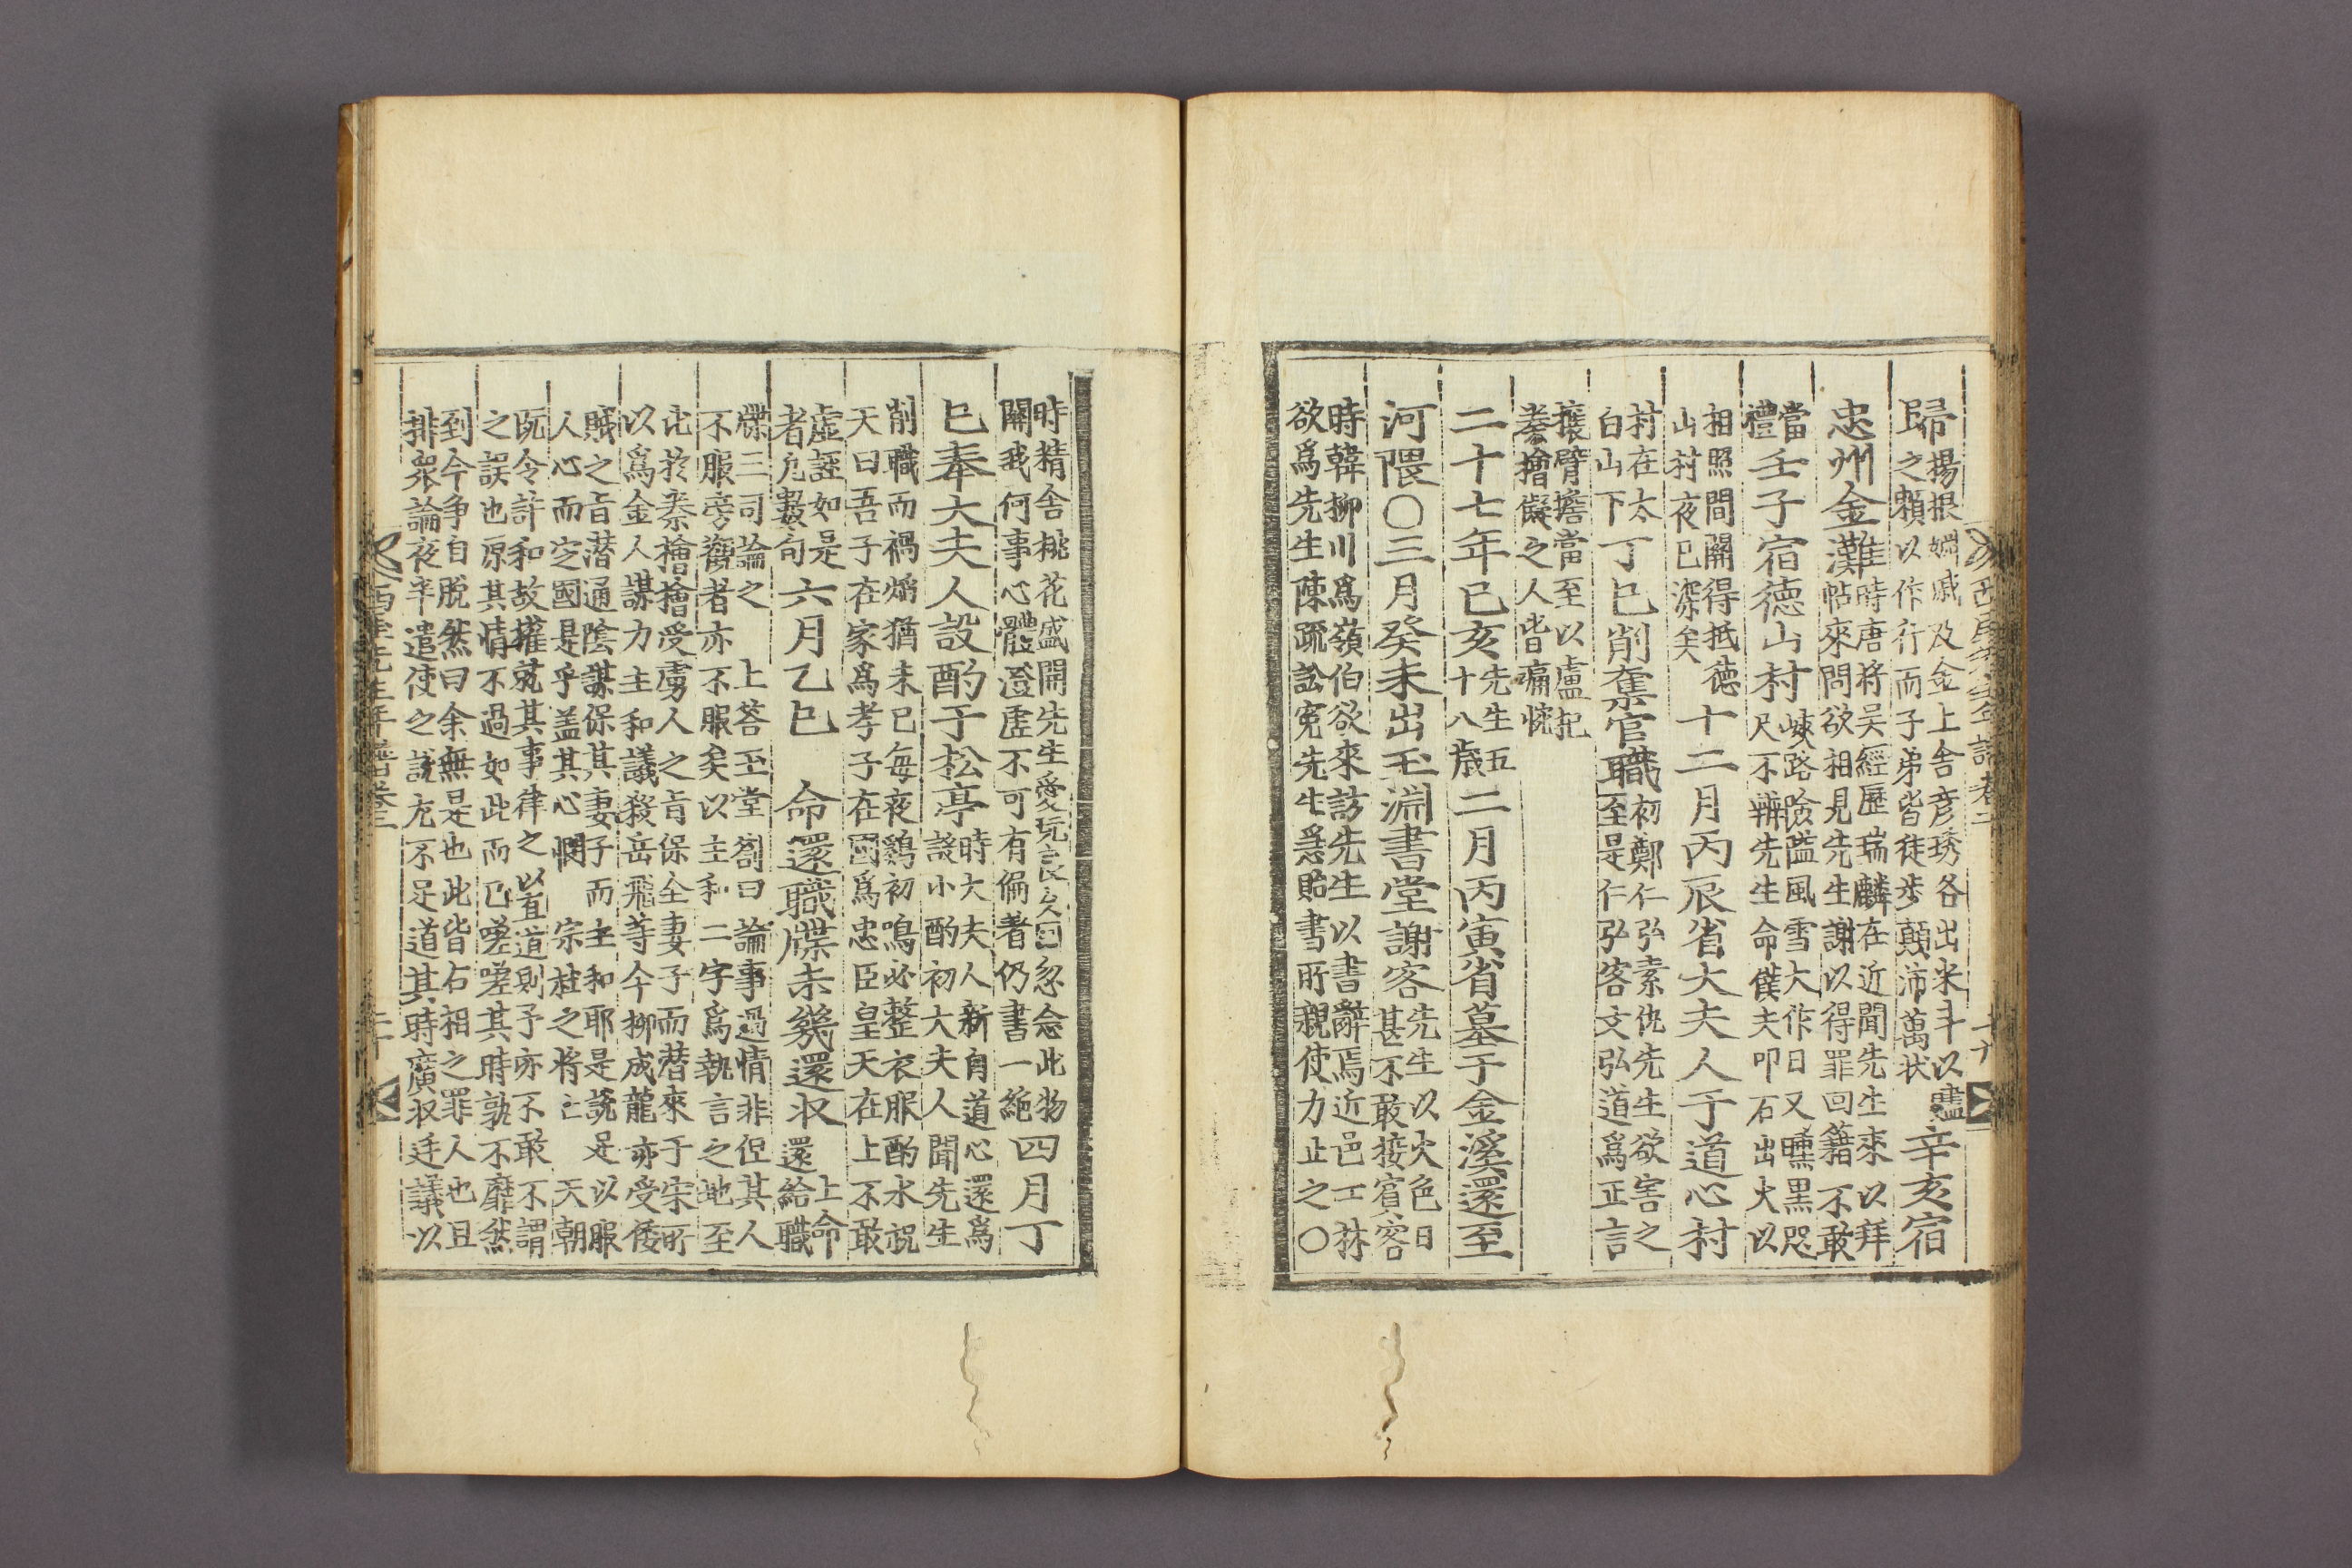 歸 楊根婣戚及金上舍彦琇各出米斗以䀋
之賴以作行而子弟皆徒步顛沛萬状 辛亥宿
忠州金灘 時唐將吴經歷瑞麟在近聞先生來以拜
帖來問欲相見先生謝以得罪回籍不敢
當
禮 壬子宿德山村 峽路險隘風雪大作日又曛黑咫
尺不辨先生命僕夫叩石出火以
相照間關得抵德
山村夜已深矣 十二月丙辰省大夫人于道心村
村在太
白山下 丁巳削奪官職 初鄭仁弘素仇先生欲害之
至是仁弘客文弘道爲正言
攘臂擔當至以盧杞
秦檜儗之人皆痛惋
二十七年己亥 先生五
十八歲 二月丙寅省墓于金溪還至
河隈○三月癸未出玉淵書堂謝客 先生以火色日
甚不敢接賓客
時韓柳川爲嶺伯欲來訪先生以書辭焉近邑士林
欲爲先生陳疏訟寃先生爲貽書所親使力止之○
西厓先生年譜卷二
十九
時精舍桃花盛開先生愛玩良久曰忽念此物
關我何事心體澄虛不可有偏着仍書一絶 四月丁
巳奉大夫人設酌于松亭 時大夫人新自道心還爲
設小酌初大夫人聞先生
削職而禍焰猶未已每夜鷄初鳴必整衣服酌水祝
天曰吾子在家爲孝子在國爲忠臣皇天在上不敢
虛誣如是
者凡數旬 六月乙巳 命還職牒未幾還收 上命
還給職
牒三司論之 上荅玉堂劄曰論事過情非但其人
不服旁觀者亦不服矣以主和二字爲執言之地至
比於秦檜檜受虜人之旨保全妻子而潜來于宋所
以爲金人謀力主和議殺岳飛等今柳成龍亦受倭
賊之旨潜通陰謀保其妻子而主和耶是說足以服
人心而定國是乎盖其心悶 宗社之將亡 天朝
旣令許和故擢就其事律之以直道則予亦不敢不謂
之誤也原其情不過如此而已嗟嗟其時孰不靡然
到今争自脫然曰余無是也此皆右相之罪人也且
排衆論夜半遣使之說尤不足道其時廣收廷議以
西厓先生年譜卷二
二十